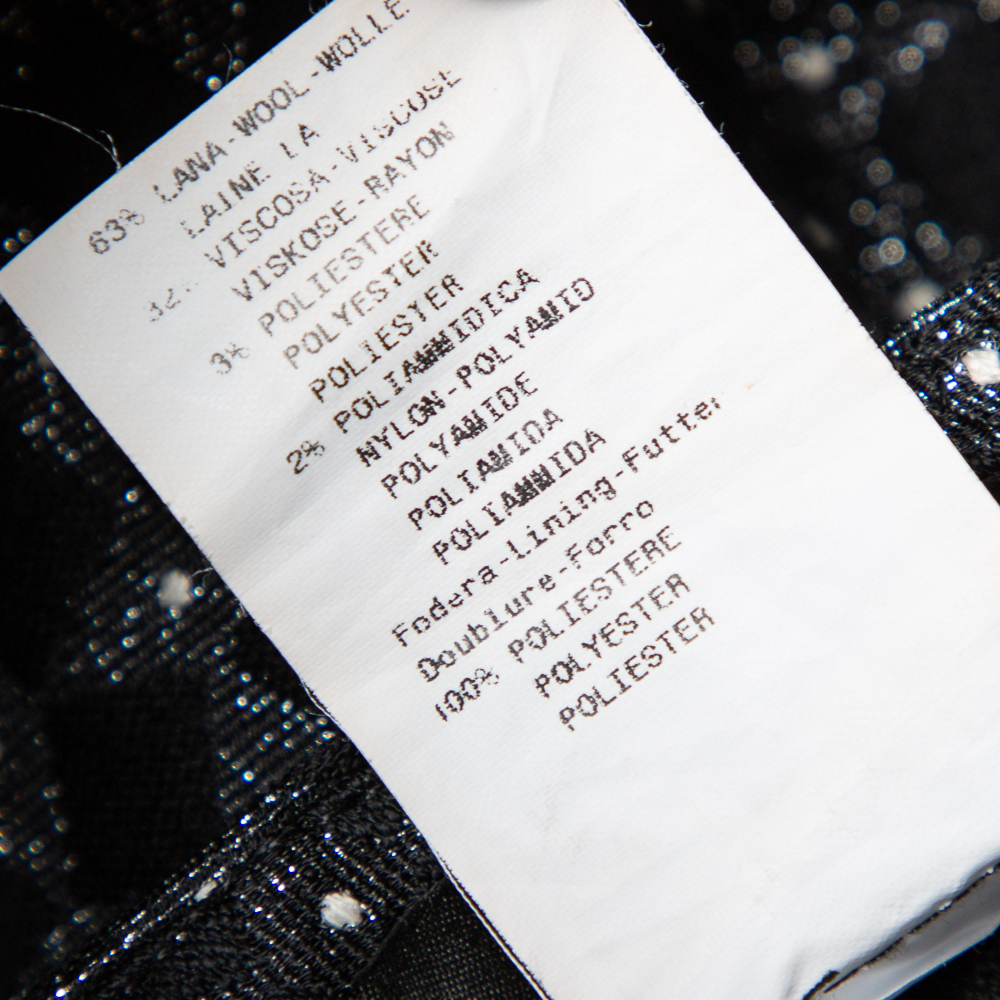 63% LANA-WOOL-WOLLE
LAINE LA
VISCOSA-VISCOSE
32% VISKOSE-RAYON
POLIESTERE
3% POLYESTER
POLIESTER
POLIAMMIDICA
2% NYLON-POLYAMID
POLYAMIDE
POLIAMIDA
POLIAMMIDA
Fodera-Lining-Futter
Doublure-Forro
100% POLIESTERE
POLYESTER
POLIESTER